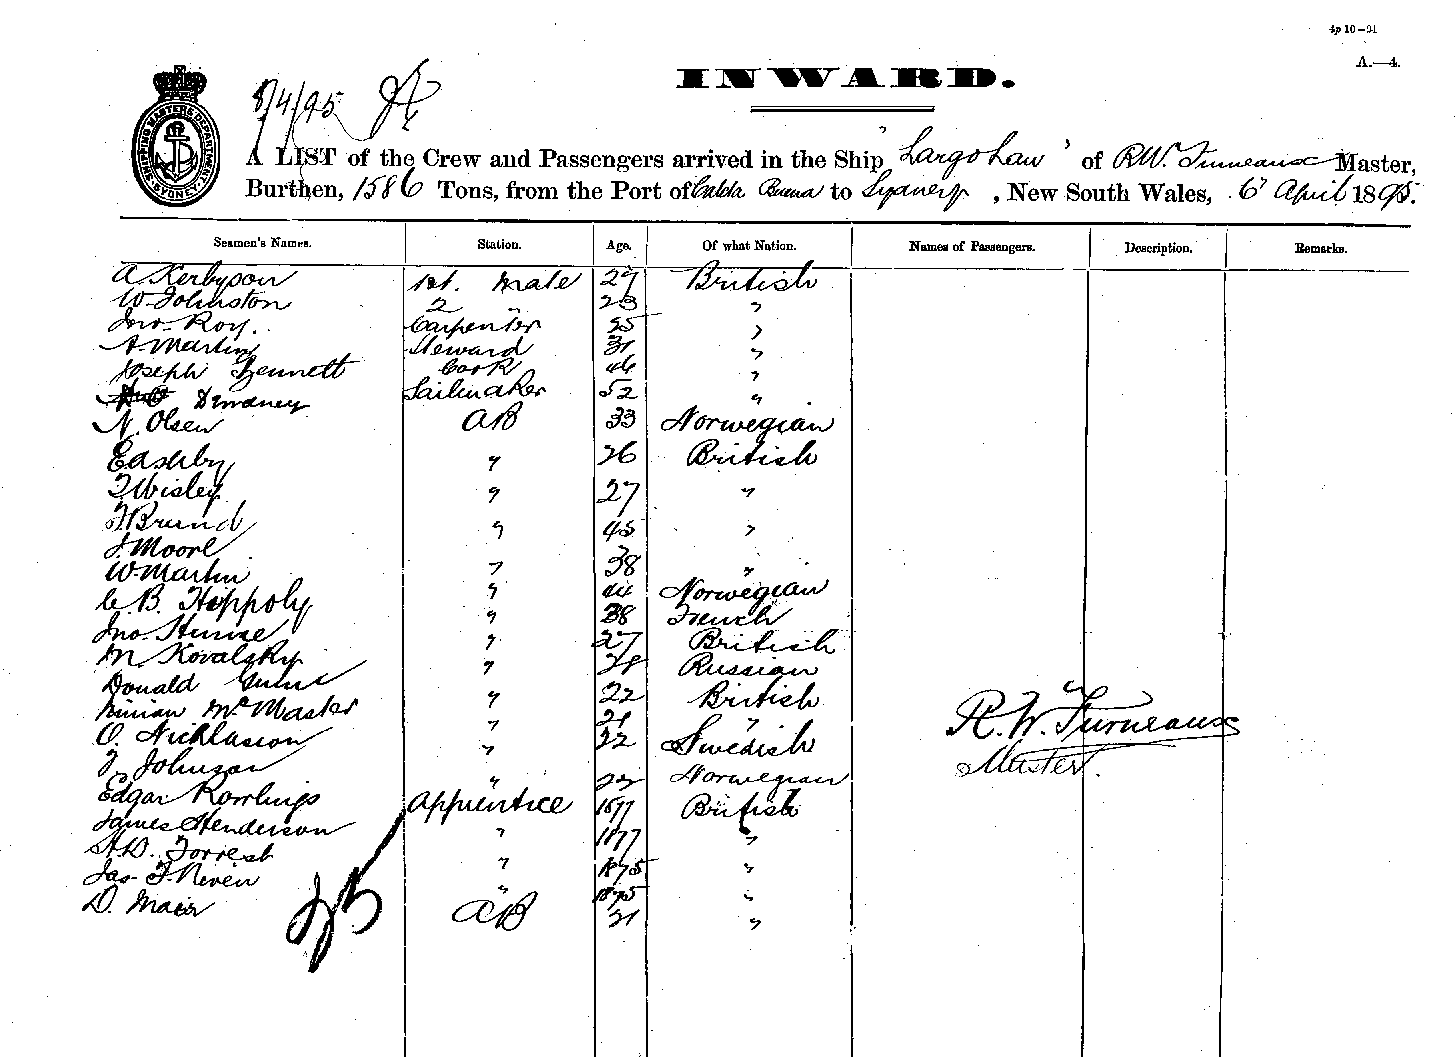 4p 10-91
A.—4.
INWARD.
8/4/95
SHIPPING MASTERS DEPARTMENT SYDNEY
A LIST of the Crew and Passengers arrived in the Ship "Largo Law" of R.W. Furneaux Master,
Burthen, 1586 Tons, from the Port of Caleta Buena to Sydney, New South Wales, 6 April 1895.
Seamen's Names. Station. Age. Of what Nation. Names of Passengers. Description. Remarks.
A Kerbyson 1st. Mate 27 British
W. Johnston 2 23 "
Jno. Roy. Carpenter "
A. Martin Steward 31 "
Joseph Bennett Cook 46 "
Sailmaker 52 "
N. Olsen AB 33 Norwegian
E Ashby " 26 British
" 27 "
" 45 "
J. Moore " 38 "
W. Martin "
C. B. Hippoly " Norwegian
38 French
Jno. " 27 British
M Kovalsky " 28 Russian
Donald " 22 British
Ninian McMaster " 21 "
O. Nicklasson " 22 Swedish
Johnson " Norwegian
Edgar Rawlings Apprentice 1877 British
James Henderson " 1877 "
Forrest " 1875 "
Jas. F. Niven " 1875 "
D. Mair AB 21 "
R. W. Furneaux
Master.
25